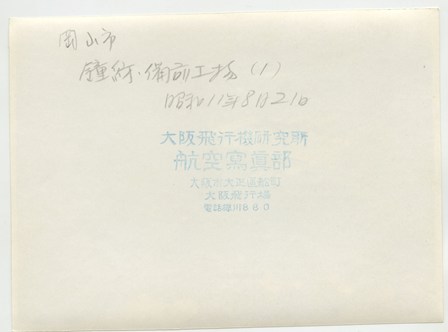 岡山市
鐘紡・備前工場(1)
昭和11年8月21日
大阪飛行機研究所
航空寫眞部
大阪市大正區船町
大阪飛行場
電話櫻川860